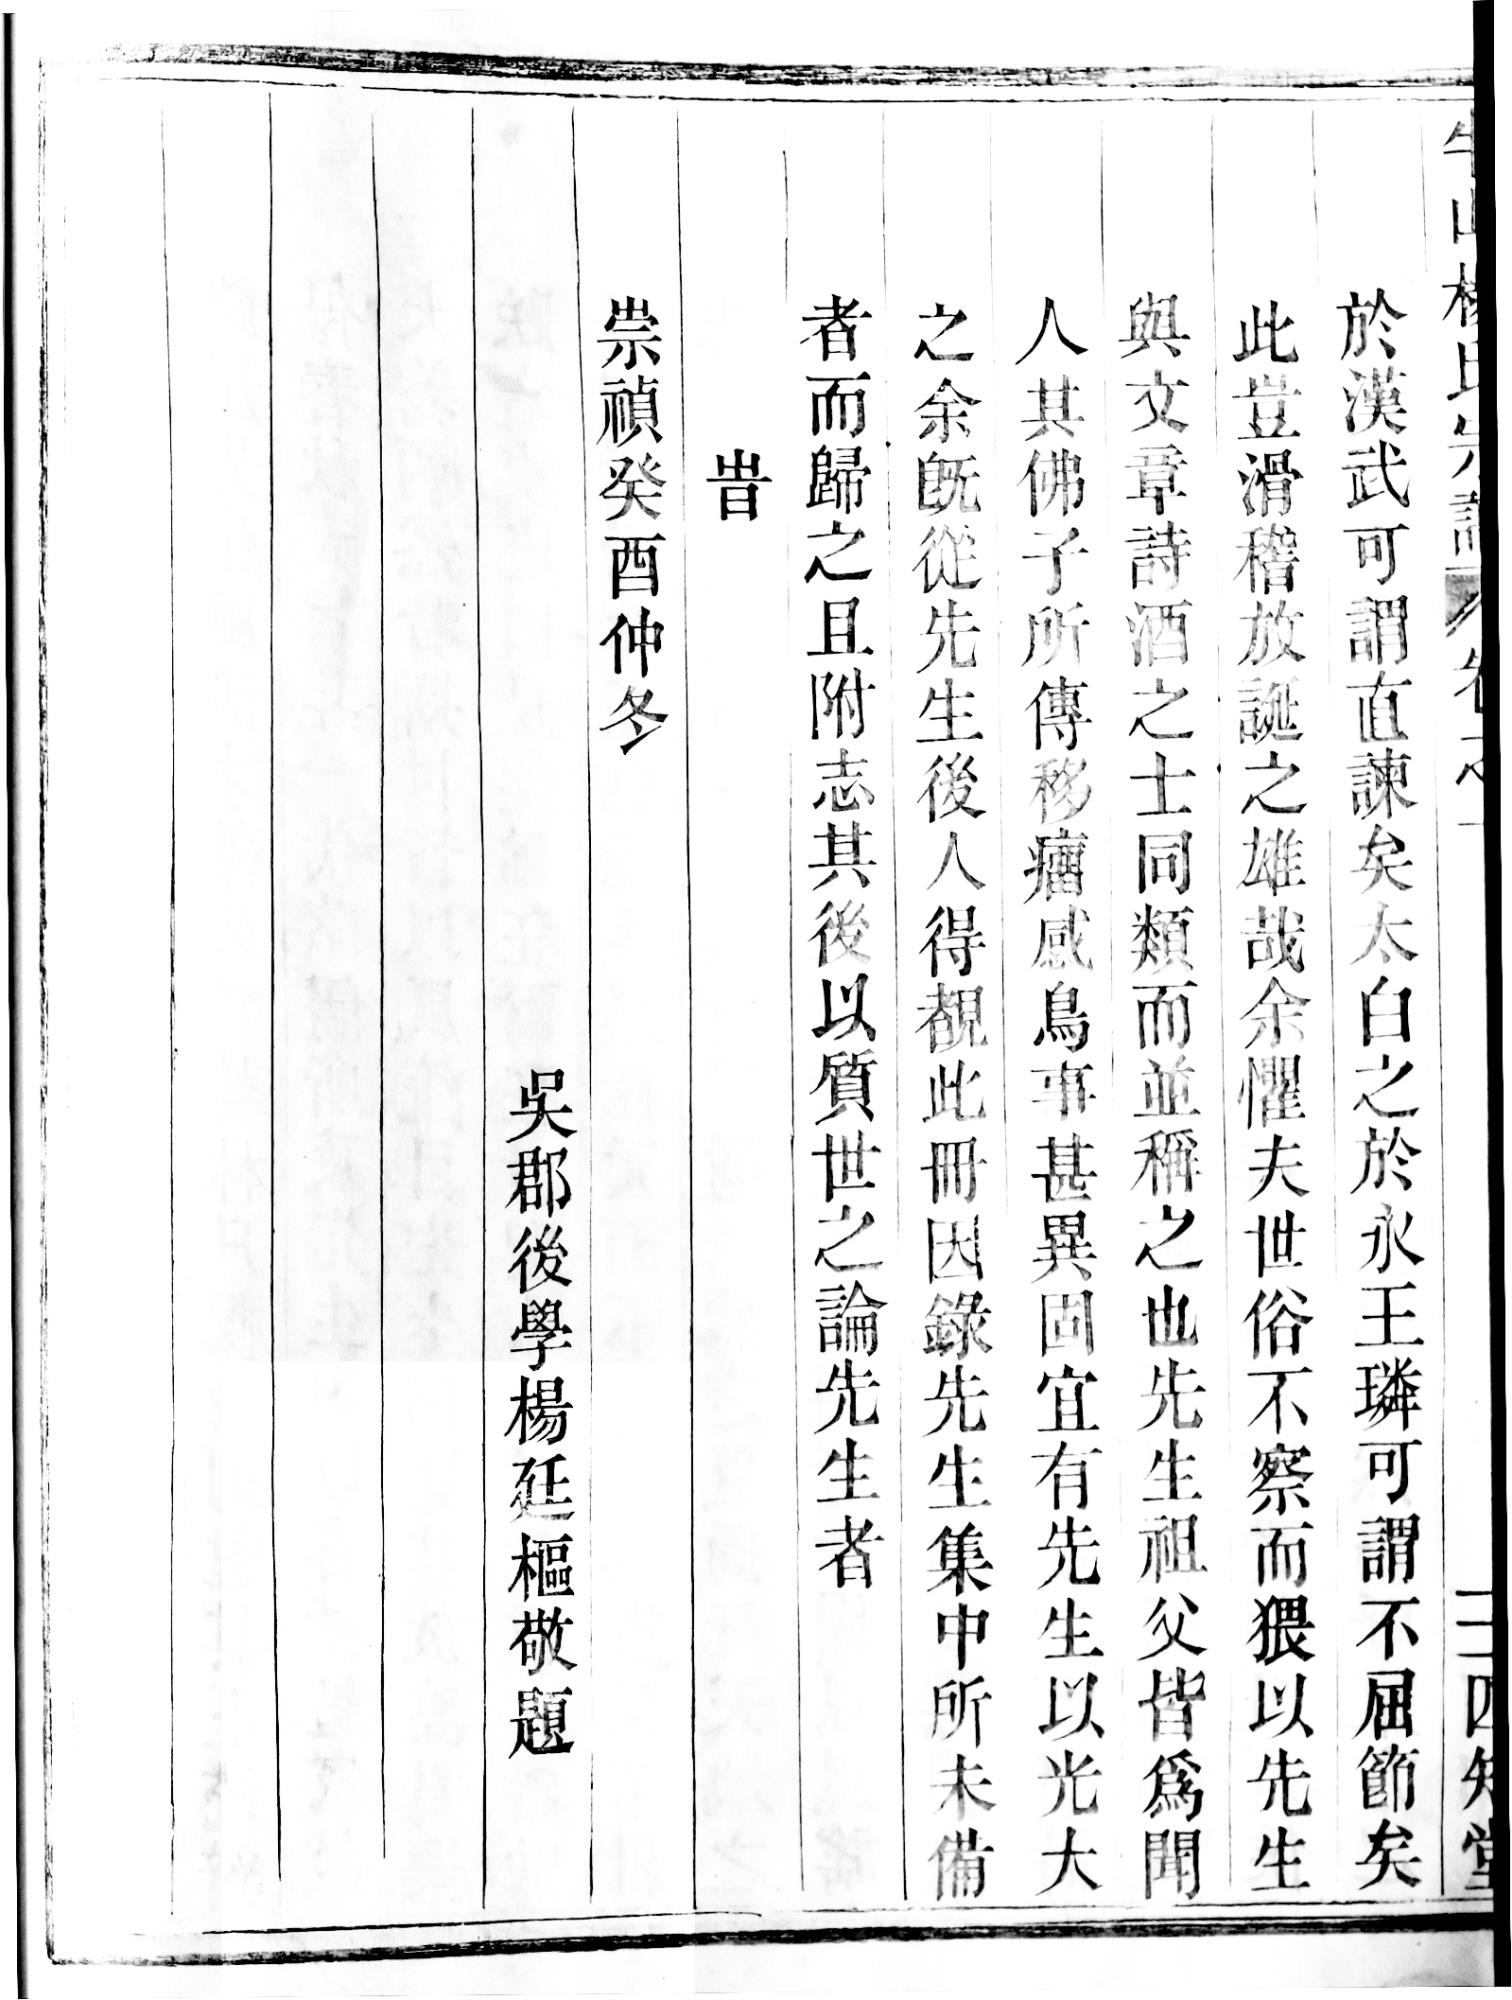 山楊氏宗譜 卷之一 三 四知堂
於漢武可謂直諫矣太白之於永王璘可謂不屈節矣
此豈滑稽放誕之雄哉余懼夫世俗不察而猥以先生
與文章詩酒之士同類而並稱之也先生祖父皆爲聞
人其佛子所傳移瘤感鳥事甚異固宜有先生以光大
之余旣從先生後人得覩此冊因錄先生集中所未備
者而歸之且附志其後以質世之論先生者
旹
崇禎癸酉仲冬
吳郡後學楊廷樞敬題